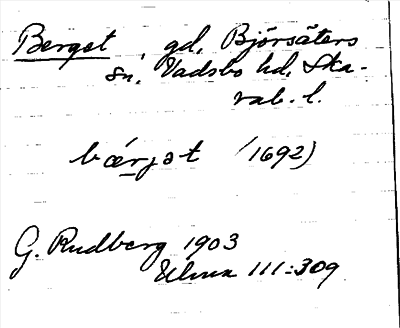 Berget, gd, Björsäters
sn, Vadsbo hd, Ska-
rab. l.
bǽrjət (1692)
G. Rudberg 1903
III:309